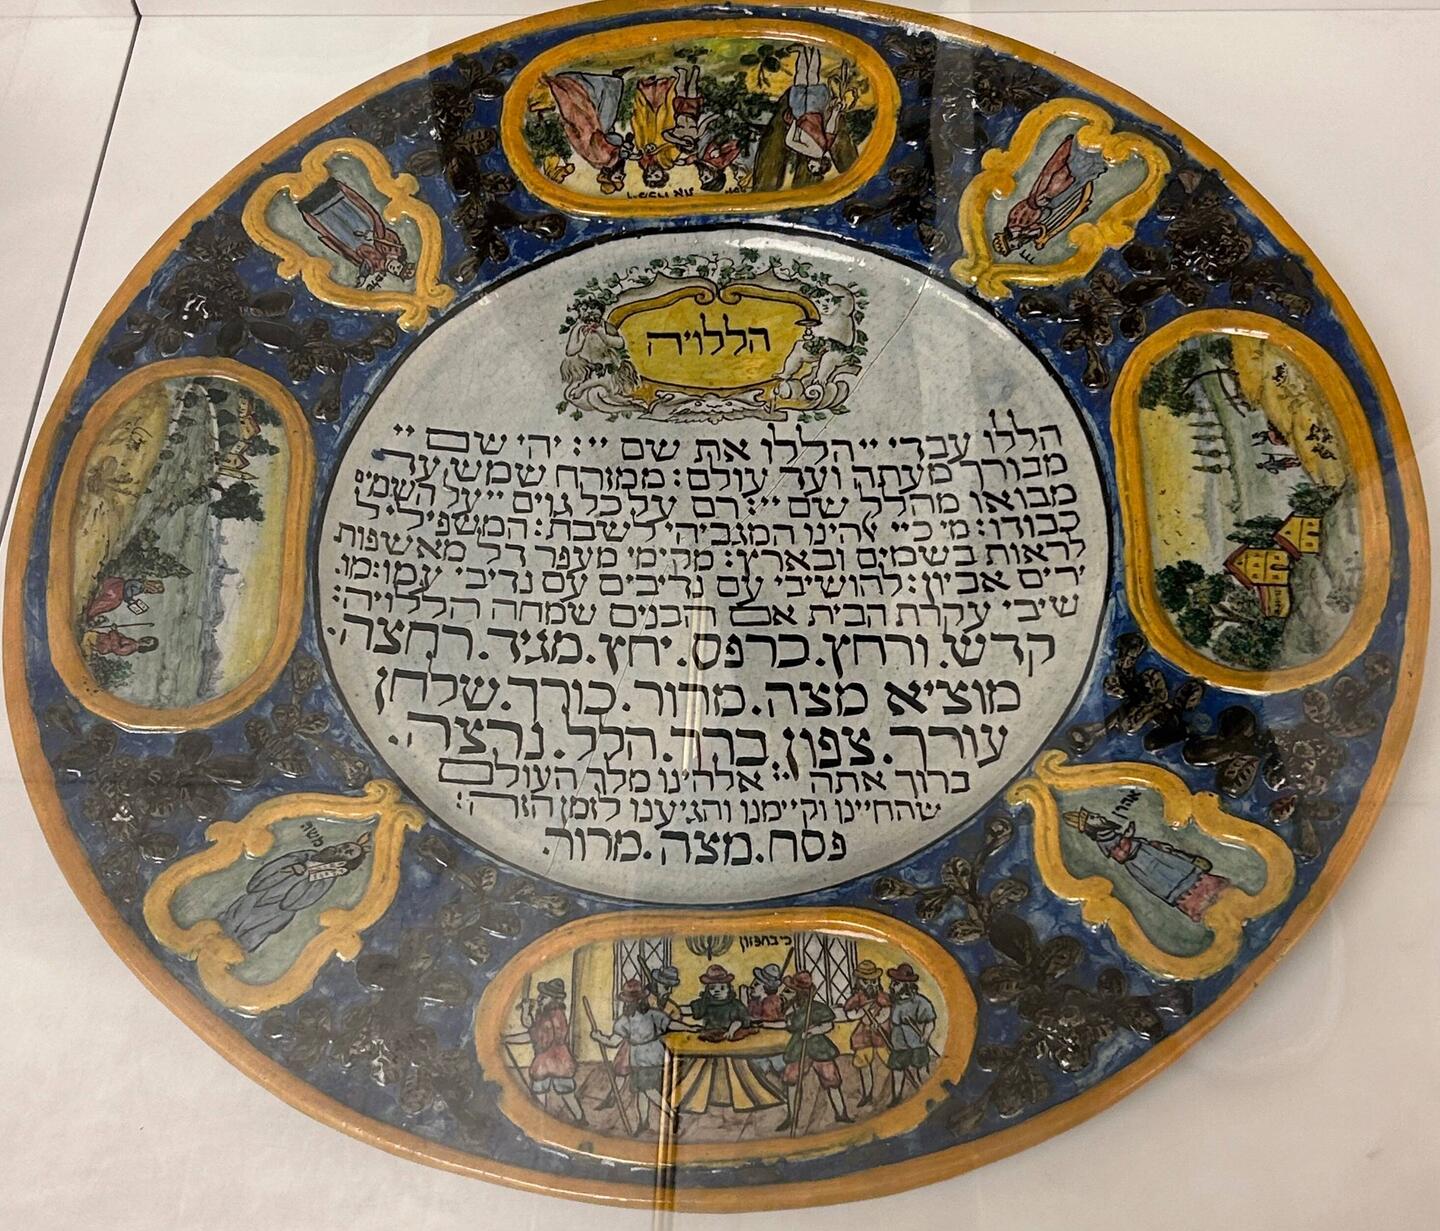 הללויה
הללו עבדי ייהללו את שם יי: יהי שם יי
מבורך מעתה ועד עולם: ממזרח שמש עד
מבואו מהלל שם יי: רם על כל גוים יי על השמים
כבודו: מי כיי אהינו המגביהי לשבת: המשפילי ל
לראות בשמים ובארץ: מקימי מעפר דל מאשפות
ירים אביון: להושיבי עם נדיבים עם נדיבי עמו: מו.
שיבי עקרת הבית אם הבנים שמחה הללויה:
קדש. ורחץ. כרפס. יחץ. מגיד. רחצה.
מוציא מצה. מרור. כורך. שלחן
עורך. צפון. ברך. הלל. נרצה.
ברוך אתה יי אלהינו מלך העולם
שהחיינו וקיימנו והגיענו לזמן הזה:
פסח. מצה. מרור.
אהרן
משה
כי בחפזון